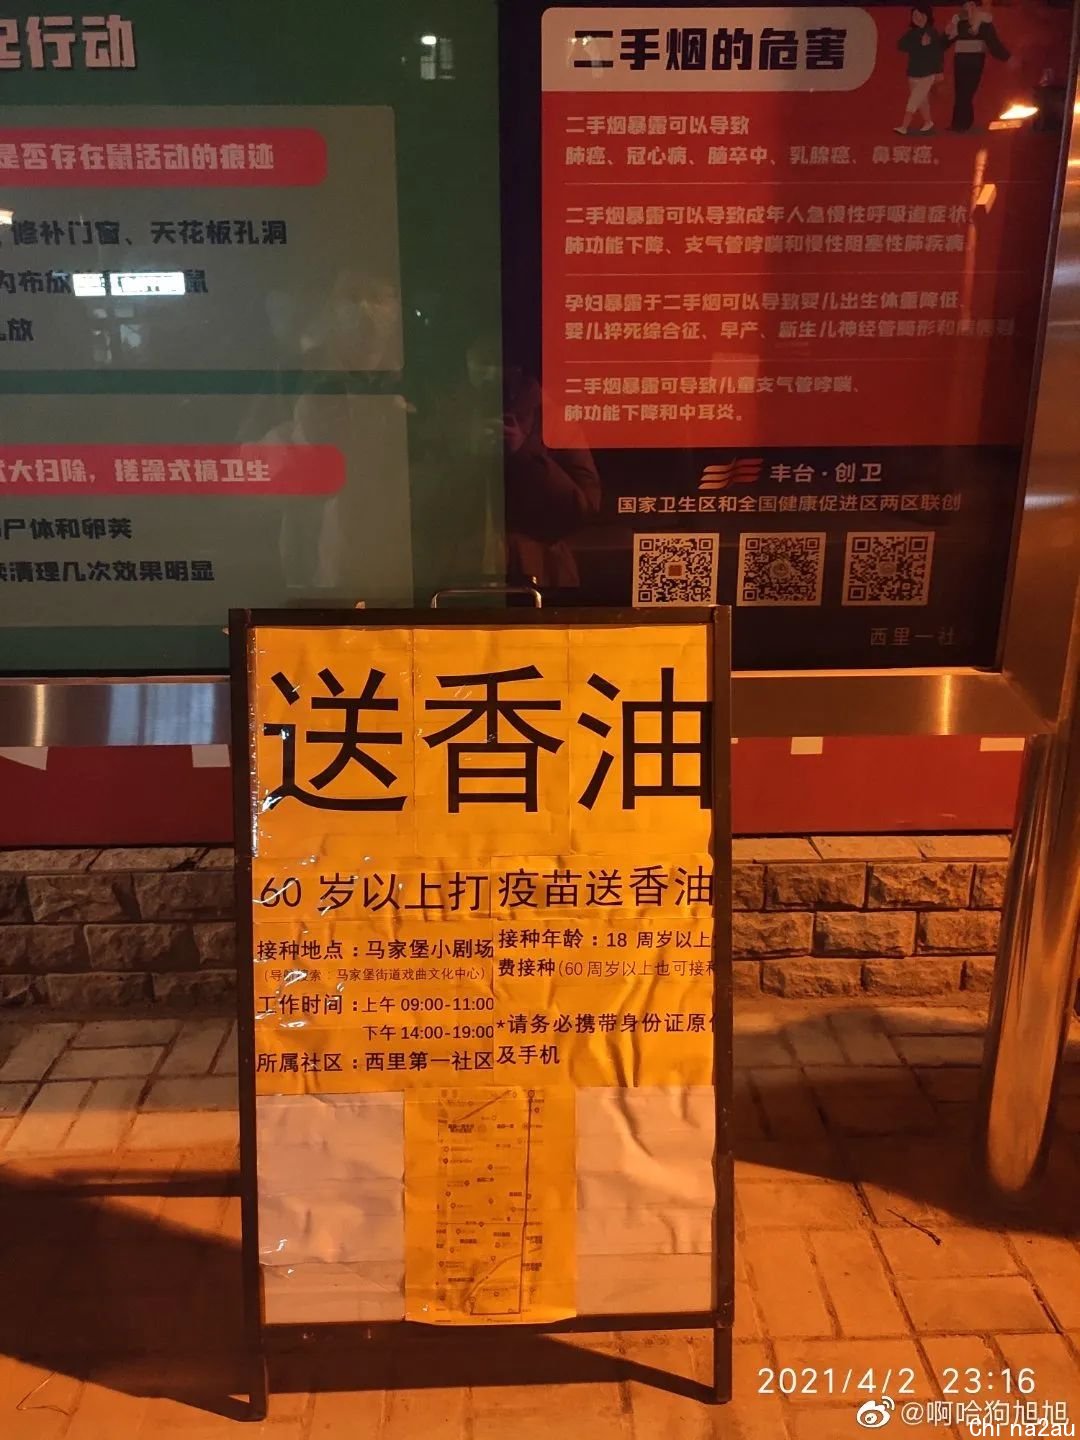 起行动
是否存在鼠活动的痕迹
修补门窗、天花板孔洞
内布放
鼠
放
大扫除，搓澡式搞卫生
尸体和卵荚
清理几次效果明显
二手烟的危害
二手烟暴露可以导致
肺癌、冠心病、脑卒中、乳腺癌、鼻窦癌。
二手烟暴露可以导致成年人急慢性呼吸道症状、
肺功能下降、支气管哮喘和慢性阻塞性肺疾病。
孕妇暴露于二手烟可以导致婴儿出生体重降低、
婴儿猝死综合征、早产、新生儿神经管畸形和唇腭裂。
二手烟暴露可导致儿童支气管哮喘、
肺功能下降和中耳炎。
丰台·创卫
国家卫生区和全国健康促进区两区联创
西里一社
送香油
60 岁以上打疫苗送香油
接种地点：马家堡小剧场
（导航搜索：马家堡街道戏曲文化中心）
工作时间：上午 09:00-11:00
下午 14:00-19:00
所属社区：西里第一社区
接种年龄：18 周岁以上
费接种(60 周岁以上也可接种
*请务必携带身份证原件
及手机
2021/4/2 23:16
@啊哈狗旭旭
Chi na2au